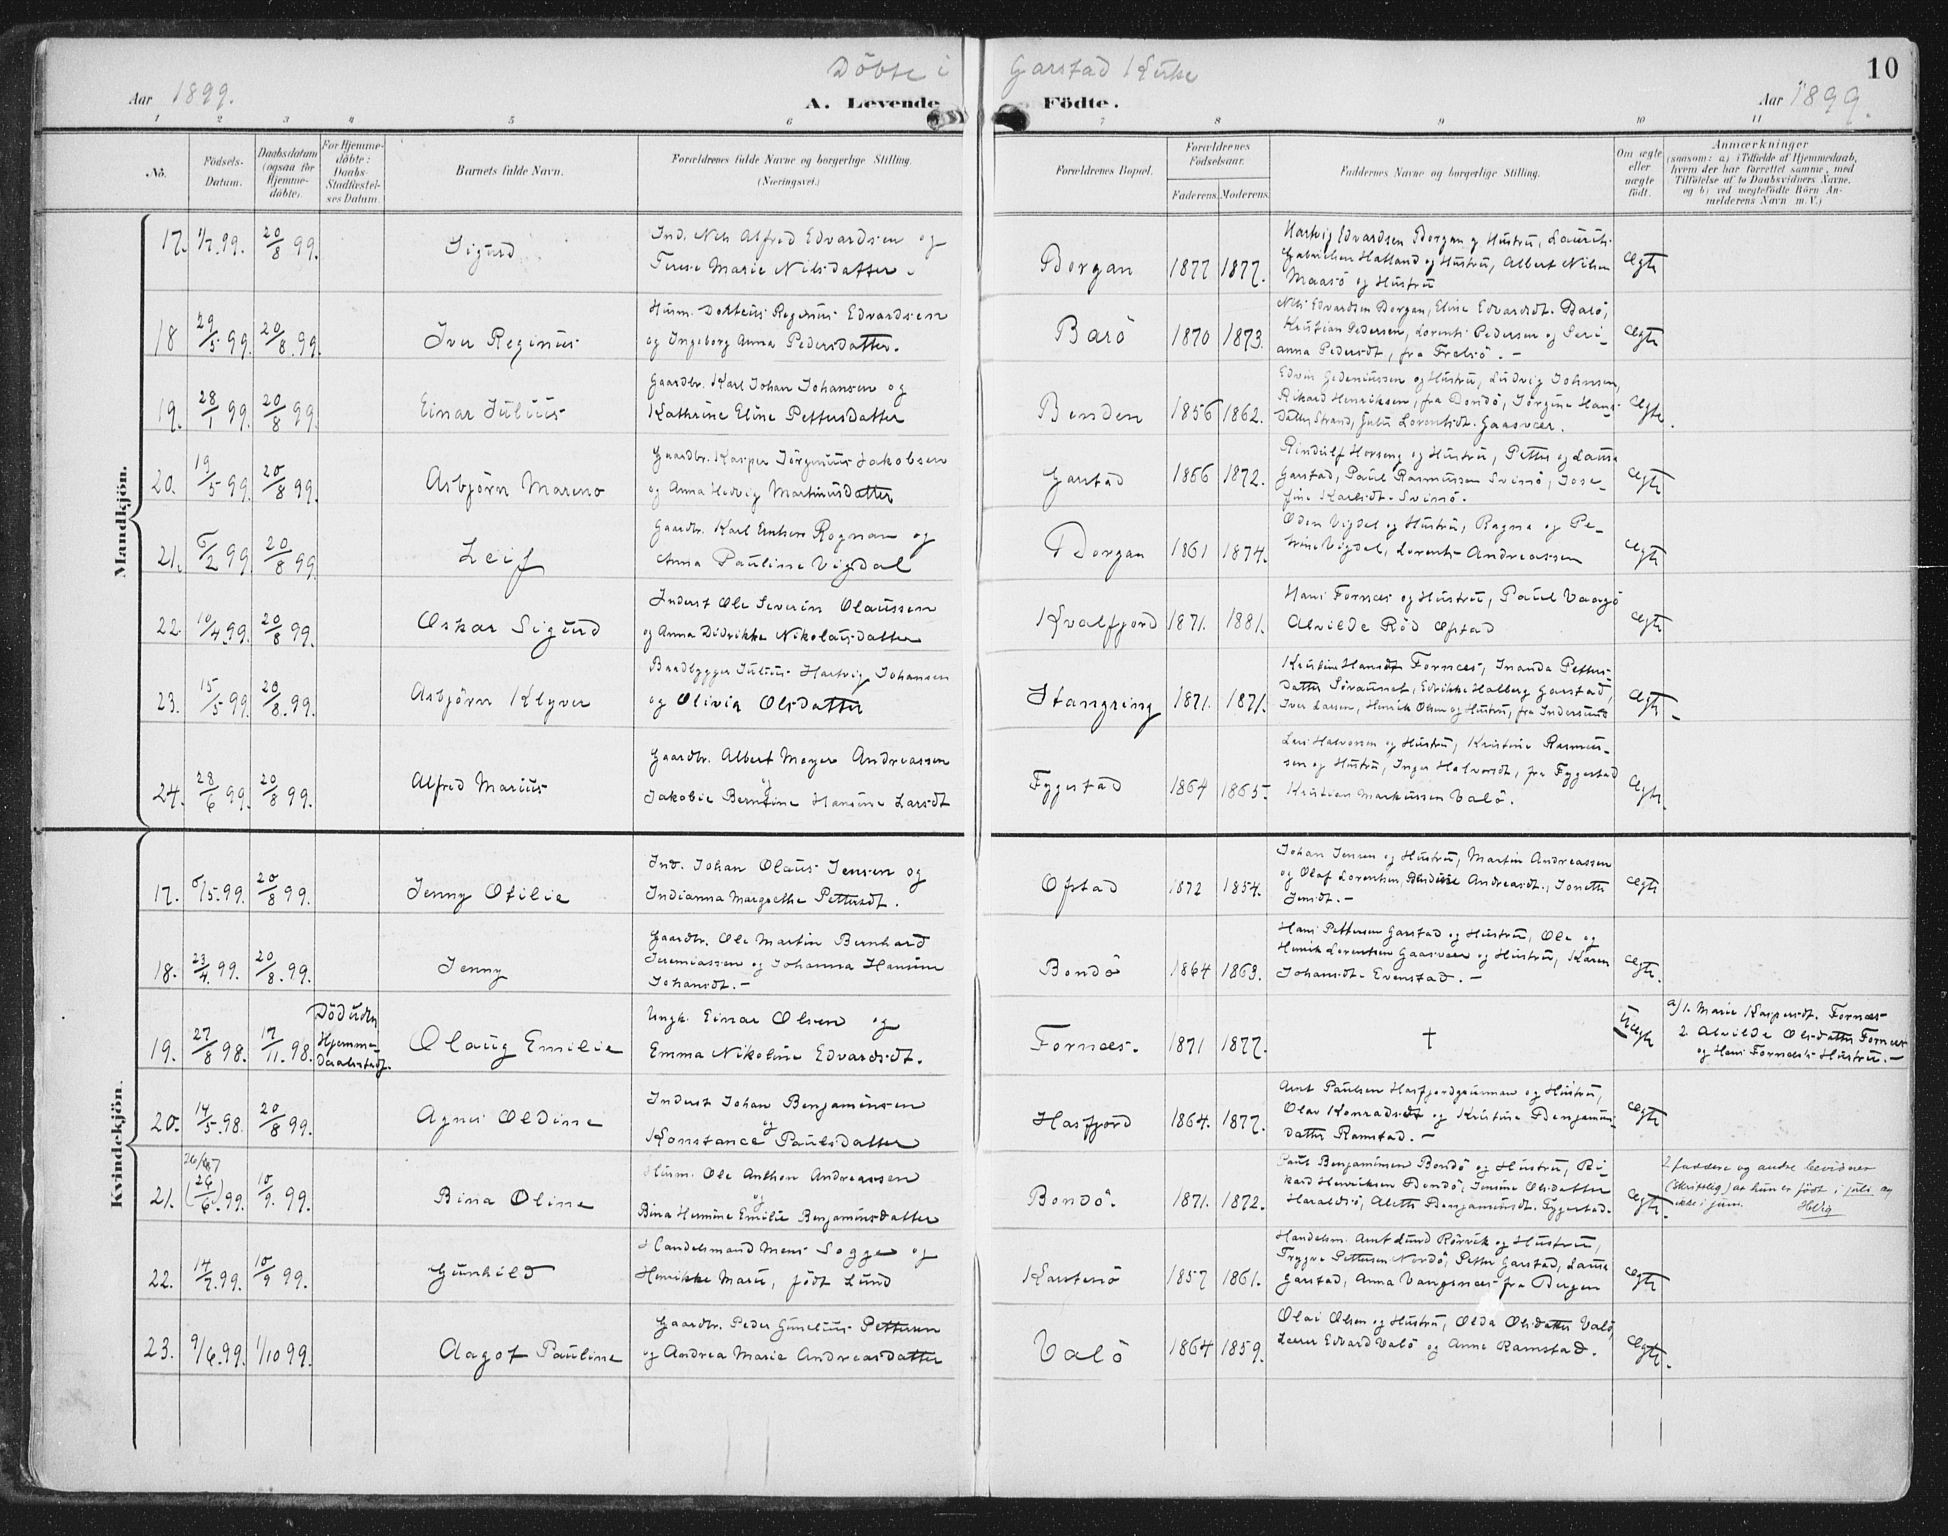 Döbte i Garstad Kirke
10
Aar 1899.
A. Levende Födte.
Aar 1899.
1 2 3 4 5 6 7 8 9 10 11
No.
Födsels-Datum.
Daabsdatum (ogsaa for Hjemme-döbte).
For Hjemme-döbte: Daabs-Stadfæstel-ses Datum.
Barnets fulde Navn.
Forældrenes fulde Navne og borgerlige Stilling. (Næringsvei.)
Forældrenes Bopæl.
Forældrenes Födselsaar.
Faderens. Moderens.
Faddernes Navne og borgerlige Stilling.
Om ægte eller uægte födt.
Anmærkninger
(saasom: a) i Tilfælde af Hjemmedaab,
hvem der har forrettet samme, med
Tilföielse af to Daabsvidners Navne,
og b) ved uegtefödte Börn An-
melderens Navn m. V.)
Mandkjön.
17. 1/7.99. 20/8 99. Sigurd
Ind. Nils Alfred Edvardsen og
Terese Marie Nilsdatter.
Borgan 1877 1877.
Hartvig Edvardsen Borgan og Hustru, Laurits
Gabrielsen Hatland og Hustru, Albert Nilsen
Maasö og Hustru
Ægte
18 29/5 99. 20/8.99. Iver Reginus
Husm. Dorteus Reginus Edvardsen
og Ingeborg Anna Pedersdatter.
Barö 1870 1873.
Nils Edvardsen Borgan, Eline Edvardsdt. Barö,
Kristian Pedersen, Lorents Pedersen og Seri-
anna Pedersdt, fra Frelsö. -
Ægte
19. 28/1 99. 20/8 99. Einar Julius
Gaardbr. Karl Johan Johansen og
Kathrine Eline Pettersdatter
Benden 1856 1862.
Edvin Gedeniussen og Hustru, Ludvig Johnsen,
Rikard Henriksen, fra Bondö, Jörgine Hans-
datter Strand, Julie Lorentsdt. Gaasvær.
Ægte.
20. 19/5 99. 20/8 99. Asbjörn Mareno
Gaardbr. Kasper Jörginius Jakobsen
og Anna Hedvig Martinusdatter
Garstad 1866 1872.
Rindulf Horseng og Hustru, Petter og Laura
Garstad, Paul Rasmussen Svinö, Jose-
fine Karlsdt. Svinö.
Ægte
21. 5/2 99. 20/8 99. Leif
Gaardbr. Karl Rognan og
Anna Pauline Vigdal
Borgan 1861 1874.
Oden Vigdal og Hustru, Ragna og Pe-
trine Vigdal, Lorents Andreassen
Ægte
22. 10/4.99. 20/8 99. Oskar Sigurd
Inderst Ole Severin Olaussen
og Anna Didrikke Nikolaisdatter
Kvalfjord 1871. 1881.
Hans Fornæs og Hustru, Paul Vaagö
Alvilde Röd Ofstad
Ægte
23. 15/5 99. 20/8.99. Asbjörn Klyver
Baadbygger Julius Hartvig Johansen
og Olivia Olsdatter
Stangring 1871. 1871.
Kristine Hansdt Fornæs, Inanda Petters-
datter Söraunet, Edrikke Halberg Garstad,
Iver Larsen, Henrik Olsen og Hustru, fra Indersund
Ægte
24. 28/6 99. 20/8 99. Alfred Marius
Gaardbr. Albert Meyer Andreassen
og
Jakobie Berntine Hansine Larsdt
Fygestad 1864 1865.
Lars Halvorsen og Hustru, Kristine Rasmus-
sen og Hustru, Inger Halvorsdt, fra Fygestad
Kristian Markussen Valö.
Ægte.
Kvindekjön.
17. 5/5.99. 20/8 99. Jenny Otilie
Ind. Johan Olaus Jensen og
Indianna Margrethe Pettersdt.
Ofstad 1872 1854.
Johan Jensen og Hustru, Martin Andreassen
og Olaf Lorentsen, Andreasdt., Jonette
Jensdt. -
Ægte
18. 23/4. 99. 20/8.99. Jenny
Gaardbr. Ole Martin Bernhard
Jeremiassen og Johanna Hansine
Johansdt. -
Bondö 1864 1863.
Hans Pettersen Garstad og Hustru, Ole og
Henrik Lorentsen Gaasvær og Hustru, Karen
Johansdt. Evenstad. -
Ægte.
19. 27/8 98. 17/11.98. Död uden Hjemme-Daabstadf. Olaug Emilie
Ungk. Einar Olsen og
Emma Nikoline Edvardsdt.
Fornæs. 1871 1877.
†
Uægte
a/1. Marie Kaspersdt. Fornæs
2. Alvilde Olsdatter Fornæs
og Hans Fornæs's Hustru. -
20. 14/5.98. 20/8 99. Agnes Oldine
Inderst Johan Benjaminsen
og
Konstance Paulsdatter
Hasfjord 1864. 1877.
Arnt Paulsen Hasfjordgrunnan og Hustru,
Olav Konradsdt og Kristine Benjamins-
datter Ramstad. -
Ægte
26/7
21. (26/6).99. 10/9. 99. Bina Oline
Husm. Ole Anthon Andreassen
og
Bina Hermine Emilie Benjaminsdatter
Bondö. 1871. 1872.
Paul Benjaminsen Bondö og Hustru, Ri-
kard Henriksen Bondö, Jensine Olsdatter
Haraldsö, Alette Benjaminsdt. Fygestad.
Ægte.
2 faddere og andre bevidner
(skriftlig) at hun er født i juli og
ikke i juni. Hvlig
22. 14/7.99. 10/9 99. Gunhild
Handelsmand Mens Sogge og
Henrikke Marie, födt Lund
Karstensö 1857 1861.
Handelsm. Arnt Lund Rörvik og Hustru,
Trygve Pettersen Nordö, Petter Garstad, Laura
Garstad, Anna Vangsnæs fra Bergen
Ægte
23. 9/6.99. 1/10 99. Aagot Pauline
Gaardbr. Peder Gunelius Pettersen
og Andrea Marie Andreasdatter
Valö 1864 1859.
Olai Olsen og Hustru, Olda Olsdatter Valö,
Lærer Edvard Valö og Anne Ramstad.
Ægte.